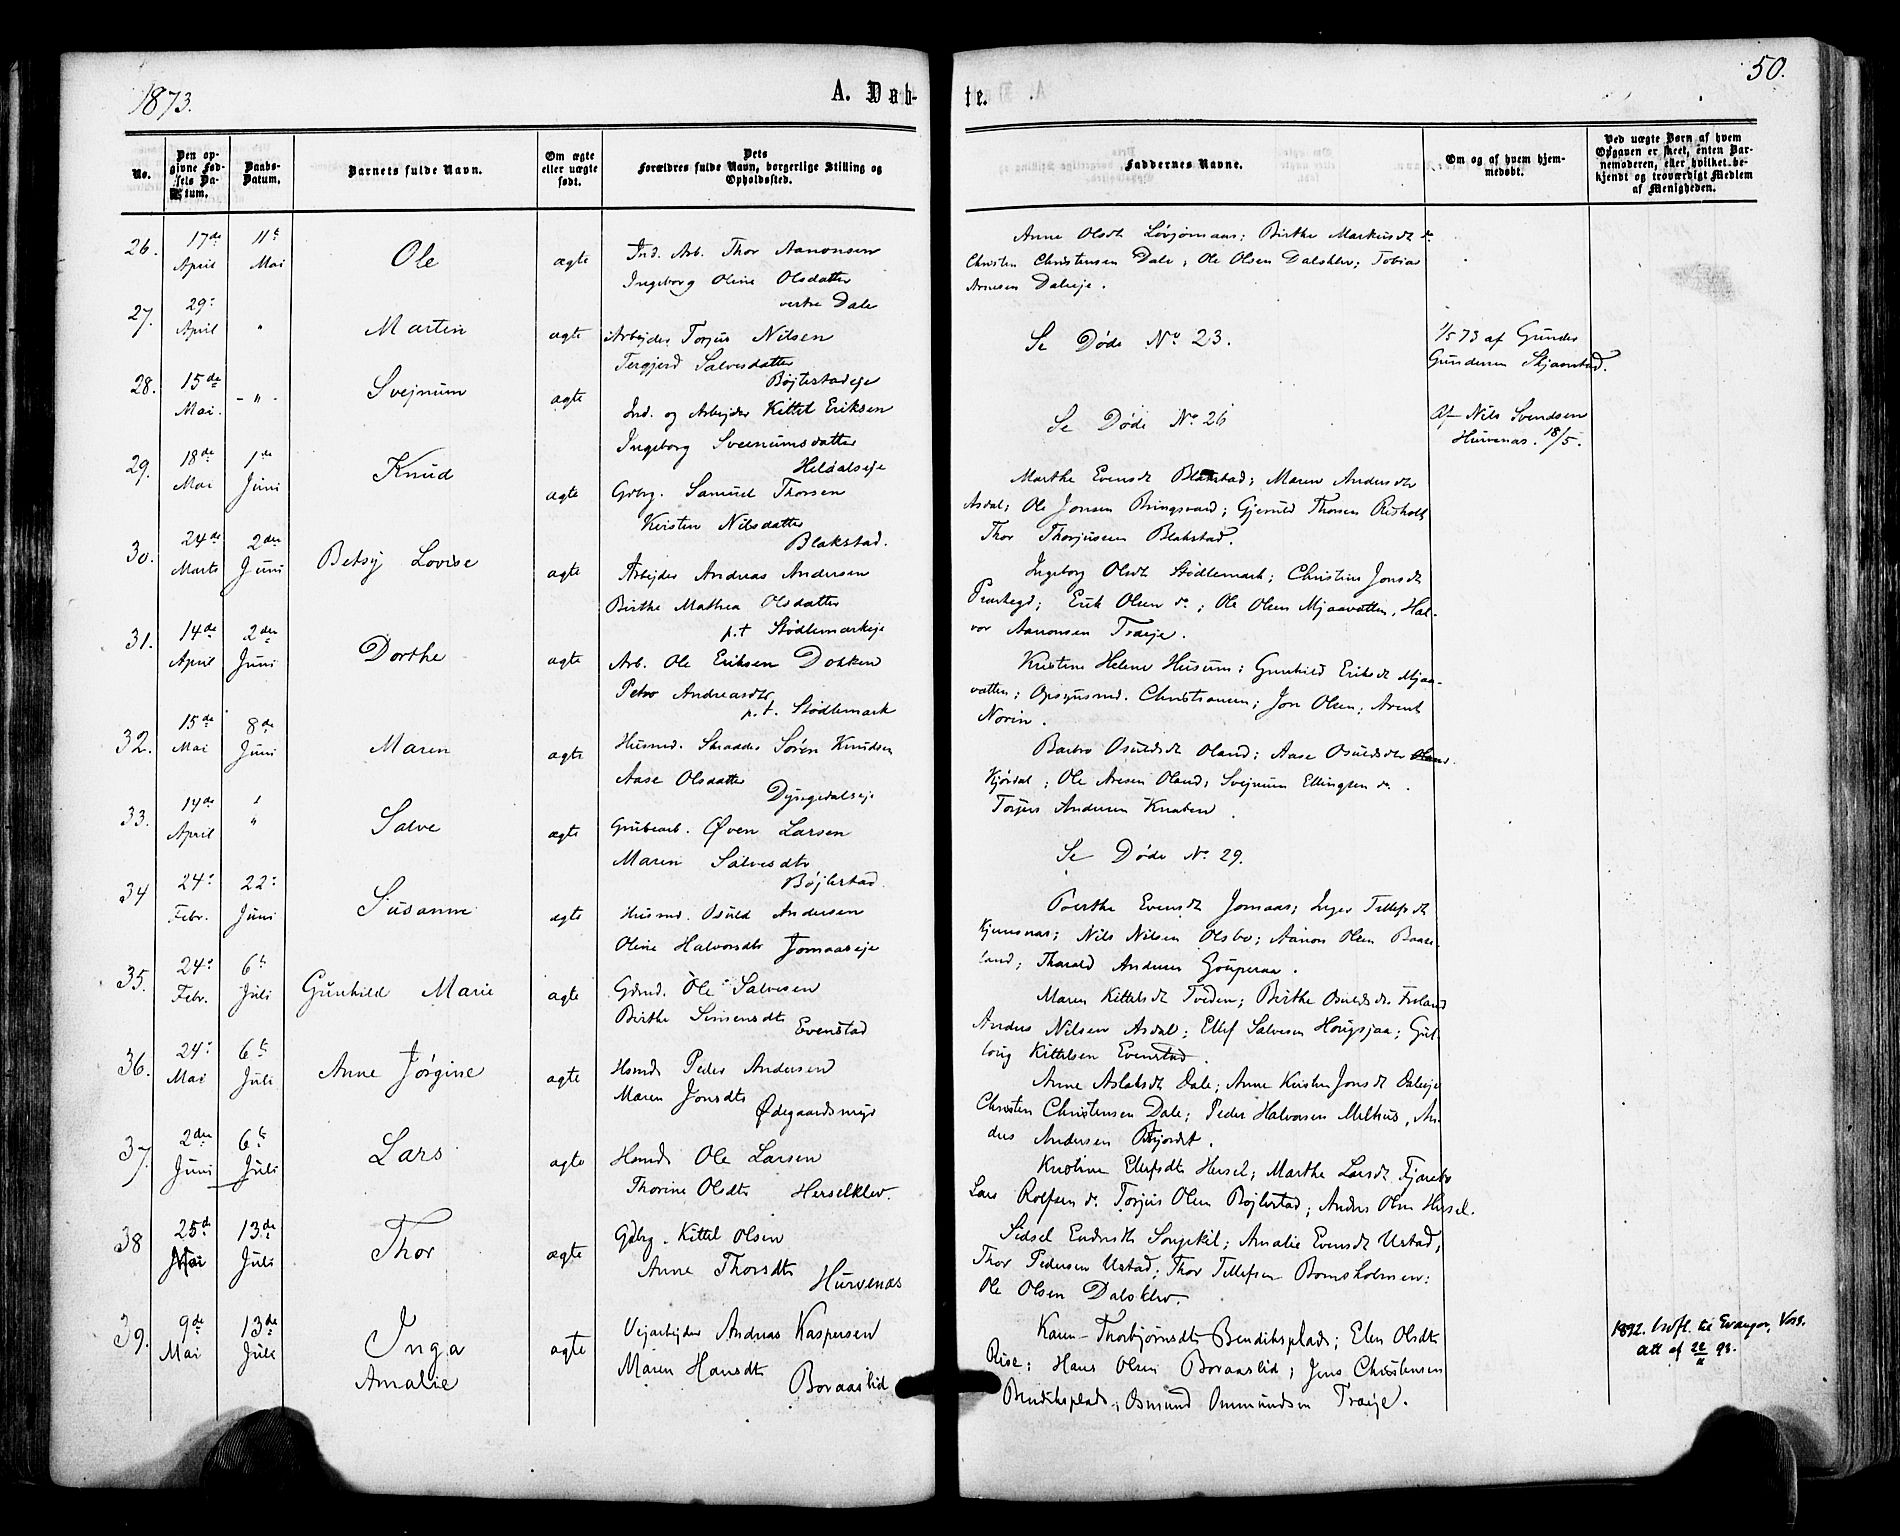 1873.
A. Dab-
te.
50.
No.
Den op-
givne Fød-
sels Da-
tum.
Daabs-
Datum.
Barnets fulde Navn.
Om ægte
eller uægte
født.
Dets
Forældres fulde Navn, borgerlige Stilling og
Opholdssted.
Faddernes Navne.
Om og af hvem hjem-
medøbt.
Ved uægte Børn af hvem
Opgaven er skeet, enten Bar-
nemoderen, eller hvilket be-
kjendt og troværdigt Medlem
af Menigheden.
26. 17de April 11te Mai Ole ægte
Ind. Arb. Thor Aanonsen
Ingeborg Oline Olsdatter
vestre Dale
Anne Olsdt ; Birthe Markusdt do
Christen Christensen Dale; Ole Olsen Dalsklev; Tobias
Arnesen Daleeje.
27. 29: April " Martin ægte
Arbejder Torjus Nilsen
Tergjerd Salvesdatter
Bøjlestadeje
Se Døde No 23.
1/5 73 af Gunder
Gundersen
28. 15de Mai. - " - Svejnum ægte
Ind. og Arbejder Kittil Eriksen
Ingeborg Sveinumsdatter
Heldalseje
Se Døde No 26
Af Nils Svendsen
Hurvenæs. 18/5.
29. 18de Mai 1de Juni Knud ægte
Gdbrg. Samuel Thorsen
Kirsten Nilsdatter
Blakstad.
Marthe Evensdt Blakstad; Maren Andersdtr
Asdal; Ole Jonsen Bringsvard; Gjeruld Thorsen Risholt
Thor Thorjussen Blakstad.
30. 24de Marts 2den Juni Betsÿ Lovise ægte
Arbejder Andreas Andersen
Birthe Mathea Olsdatter
p.t Stødlemarkeje
Ingeborg Olsdt Stødlemark; Christine Jonsdt
Præstegd; Erik Olsen do; Ole Olsen Mjaavatten, Hal-
vor Aanonsen Træeje.
31. 14de April 2den Juni Dorthe ægte
Arb. Ole Eriksen Dokken
Petro Andreasdtr
p.t. Stødlemark
Kristine Helene Husum; Gunhild Eriksdt Mjaa-
vatten; Opsynsmd. Christiansen; Jon Olsen; Arent
Norin.
32. 15de Mai 8de Juni Maren ægte
Husmd. Skrædder Søren Knudsen
Aase Olsdatter
Dyngedalseje
Barbro Osuldsdt Oland; Aase Osuldsdtr
Kjørdal; Ole Aresen Oland; Svejnum Ellingsen do.
Torjus Andersen Knaben.
33. 14de April " Salve ægte
Grubearb. Øven Larsen
Maren Salvesdtr
Bøjlestad.
Se Døde No 29.
34 24: Febr. 22: Juni Susanne ægte
Husmd. Osuld Andersen
Oline Halvorsdtr Jomaaseje
Berthe Evensdt Jomaas; Inger Tellefsdt
; Nils Nilsen Olsbo; Aanon Olsen Baase-
land; Tharald Andersen
35. 24: Febr. 6te Juli Gunhild Marie ægte
Gdmd. Ole Salvesen
Birthe Simensdtr Evenstad
Maren Kittelsdt Tveden; Birthe Osuldsdt. Frland
Anders Nilsen Asdal; Ellef Salvesen Hougsjaa; Gut-
torg Kittelsen Evenstad.
36. 24: Mai 6te Juli Anne Jørgine ægte
Husmd. Peder Andersen
Maren Jonsdtr
Ødegaardsmyr
Anne Aslaksdt Dale; Anne Kirstine Jonsdt Daleeje
Christen Christensen Dale; Peder Halvorsen Melhus, An-
ders Andersen
37. 2den Juni 6te Juli Lars ægte
Husmd. Ole Larsen
Thorine Olsdtr Herselklev.
Kristine Ellefsdtr Hersel; Marthe Larsdt
Lars Rolfsen do Torjus Olsen Bøjlestad; Anders Olsen Hersel.
38 25de Mai 13de Juli Thor ægte
Gdbrg. Kittil Olsen
Anne Thorsdtr
Hurvenæs
Sidsel Endresdtr Songekil; Amalie Evensdt Ustad;
Thor Pedersen Ustad; Thor Tellefsen Bomsholmen;
Ole Olsen Dalsklev.
39. 9de Mai 13de Juli Inga
Amalie ægte
Vejarbejder Andreas Kaspersen
Maren Hansdtr
Boraaslid
Karen Thorbjørnsdtr Bendiksplads; Elen Olsdtr
Rise; Hans Olsen Boraaslid; Jens Christensen
Bendiksplads; Osmund Ommundsen Træeje.
1892. Udfl. til Evanger, Voss.
Att af 22/11 93.